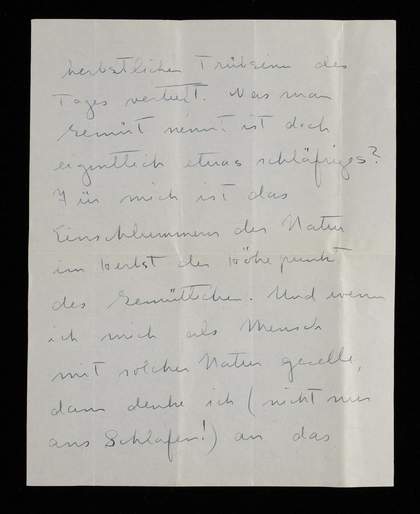 herbstlichen Trübsinn des
Tages vertieft. Was man
Gemüt nennt ist doch
eigentlich etwas schläfriges?
Für mich ist das
Einschlummern der Natur
im Herbst der Höhepunkt
des Gemütlichen. Und wenn
ich mich als Mensch
mit solcher Natur geselle,
dann denke ich (nicht nur
ans Schlafen!) an das